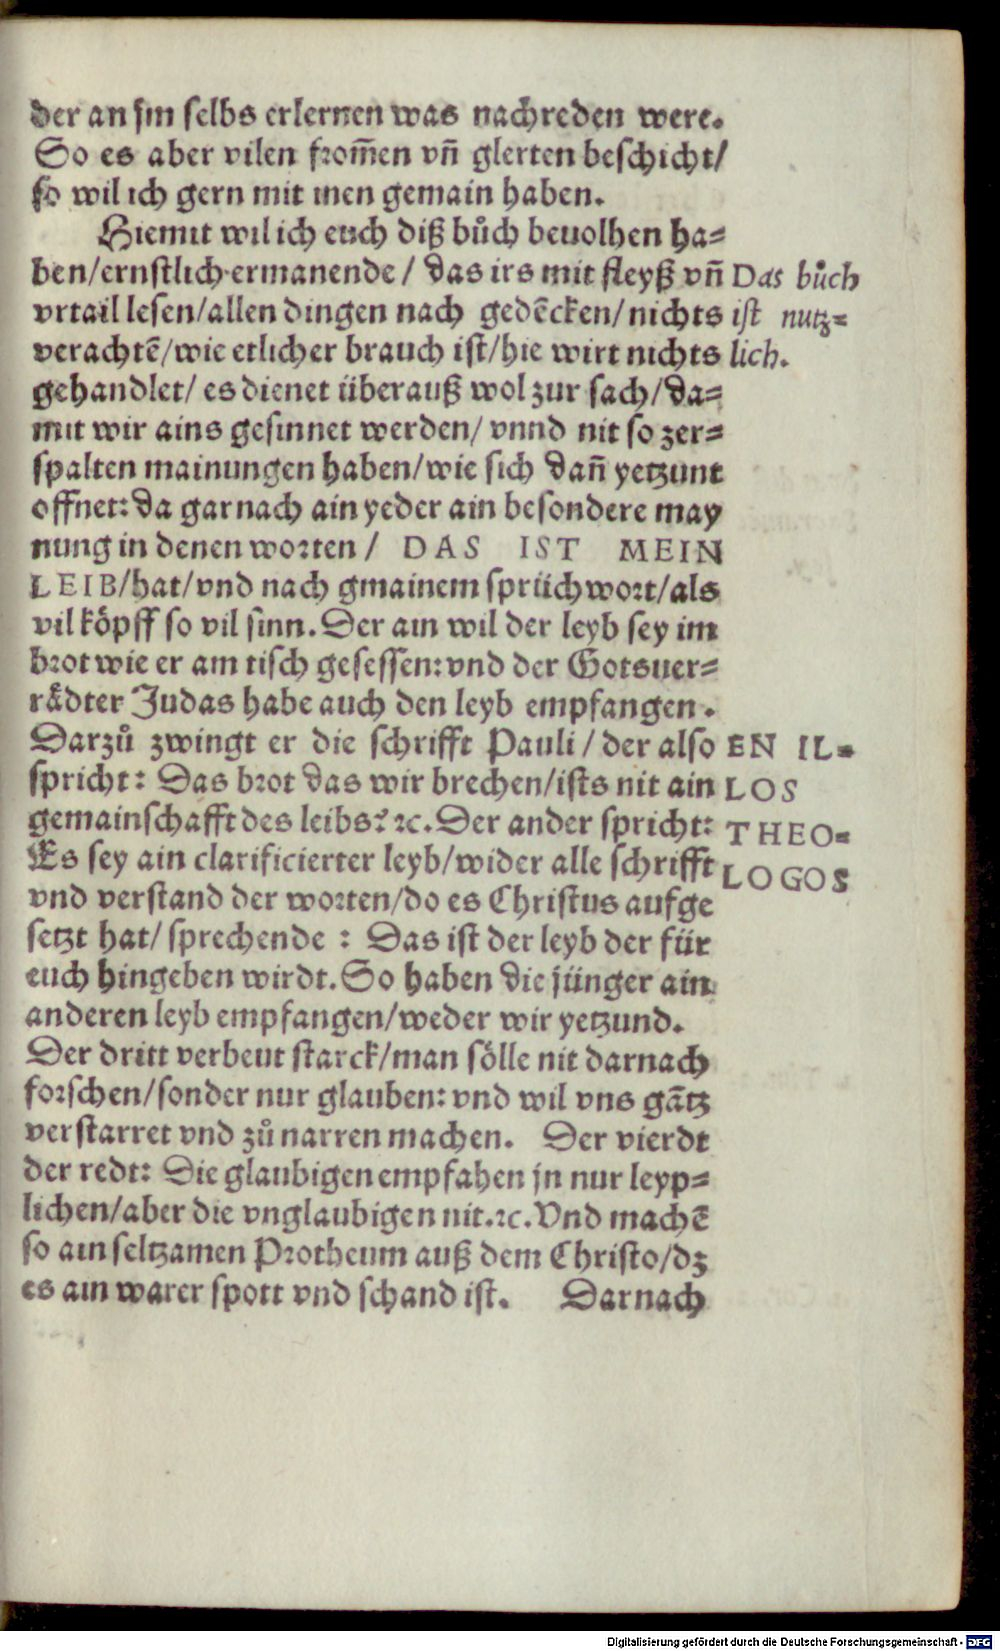 der an jm selbs erlernen was nachreden were.
So es aber vilen from̃en vñ glerten beschicht/
so wil ich gern mit inen gemain haben.
Hiemit wil ich euch diß bůch beuolhen ha⸗
ben/ernstlich ermanende/ das irs mit fleyß vñ
vrtail lesen/allen dingen nach gedēcken/nichts
verachtē/wie etlicher brauch ist/hie wirt nichts
gehandlet/ es dienet überauß wol zur sach/da⸗
mit wir ains gesinnet werden/ vnnd nit so zer⸗
spalten mainungen haben/wie sich dañ yetzunt
offnet: da gar nach ain yeder ain besondere may
nung in denen worten / DAS IST MEIN
LEIB/hat/vnd nach gmainem sprüchwort/als
vil köpff so vil sinn. Der ain wil der leyb sey im
brot wie er am tisch gesessen: vnd der Gotsuer⸗
rådter Judas habe auch den leyb empfangen.
Darzů zwingt er die schrifft Pauli/ der also
spricht: Das brot das wir brechen/ists nit ain
gemainschafft des leibs? ꝛc. Der ander spricht:
Es sey ain clarificierter leyb/wider alle schrifft
vnd verstand der worten/do es Christus aufge
setzt hat/ sprechende : Das ist der leyb der für
euch hingeben wirdt. So haben die jünger ain
anderen leyb empfangen/weder wir yetzund.
Der dritt verbeut starck/man sölle nit darnach
forschen/sonder nur glauben: vnd wil vns gātz
verstarret vnd zů narren machen. Der vierdt
der redt: Die glaubigen empfahen jn nur leyp⸗
lichen/aber die vnglaubigen nit.ꝛc. Vnd machē
so ain seltzamen Protheum auß dem Christo/dz
es ain warer spott vnd schand ist. Darnach
Das bůch
ist nutz⸗
lich.
EN IL⸗
LOS
THEO⸗
LOGOS
Digitalisierung gefördert durch die Deutsche Forschungsgemeinschaft - DFG